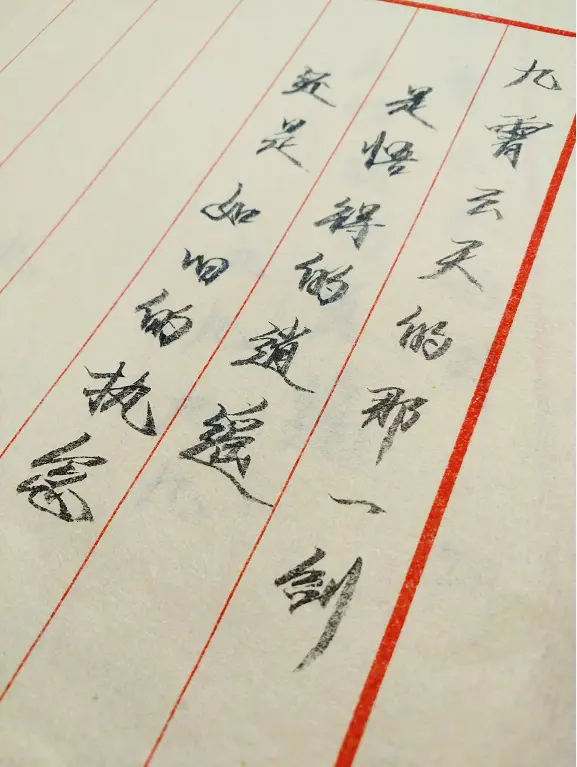 九霄云天的那一剑
是悟得的逍遥
还是如旧的执念